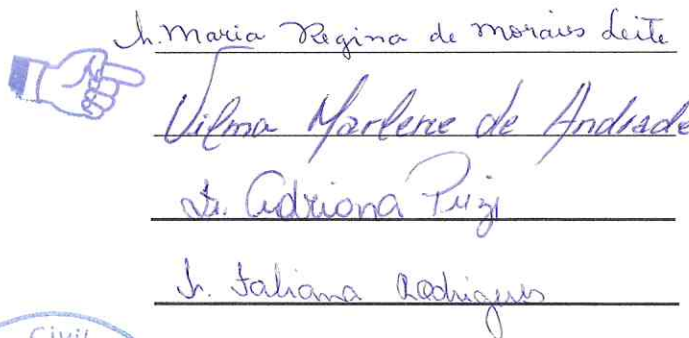 Ir. Maria Regina de Morais Leite
Vilma Marlene de Andrade
Ir. Adriana
Ir. Tatiana Rodrigues
Civil